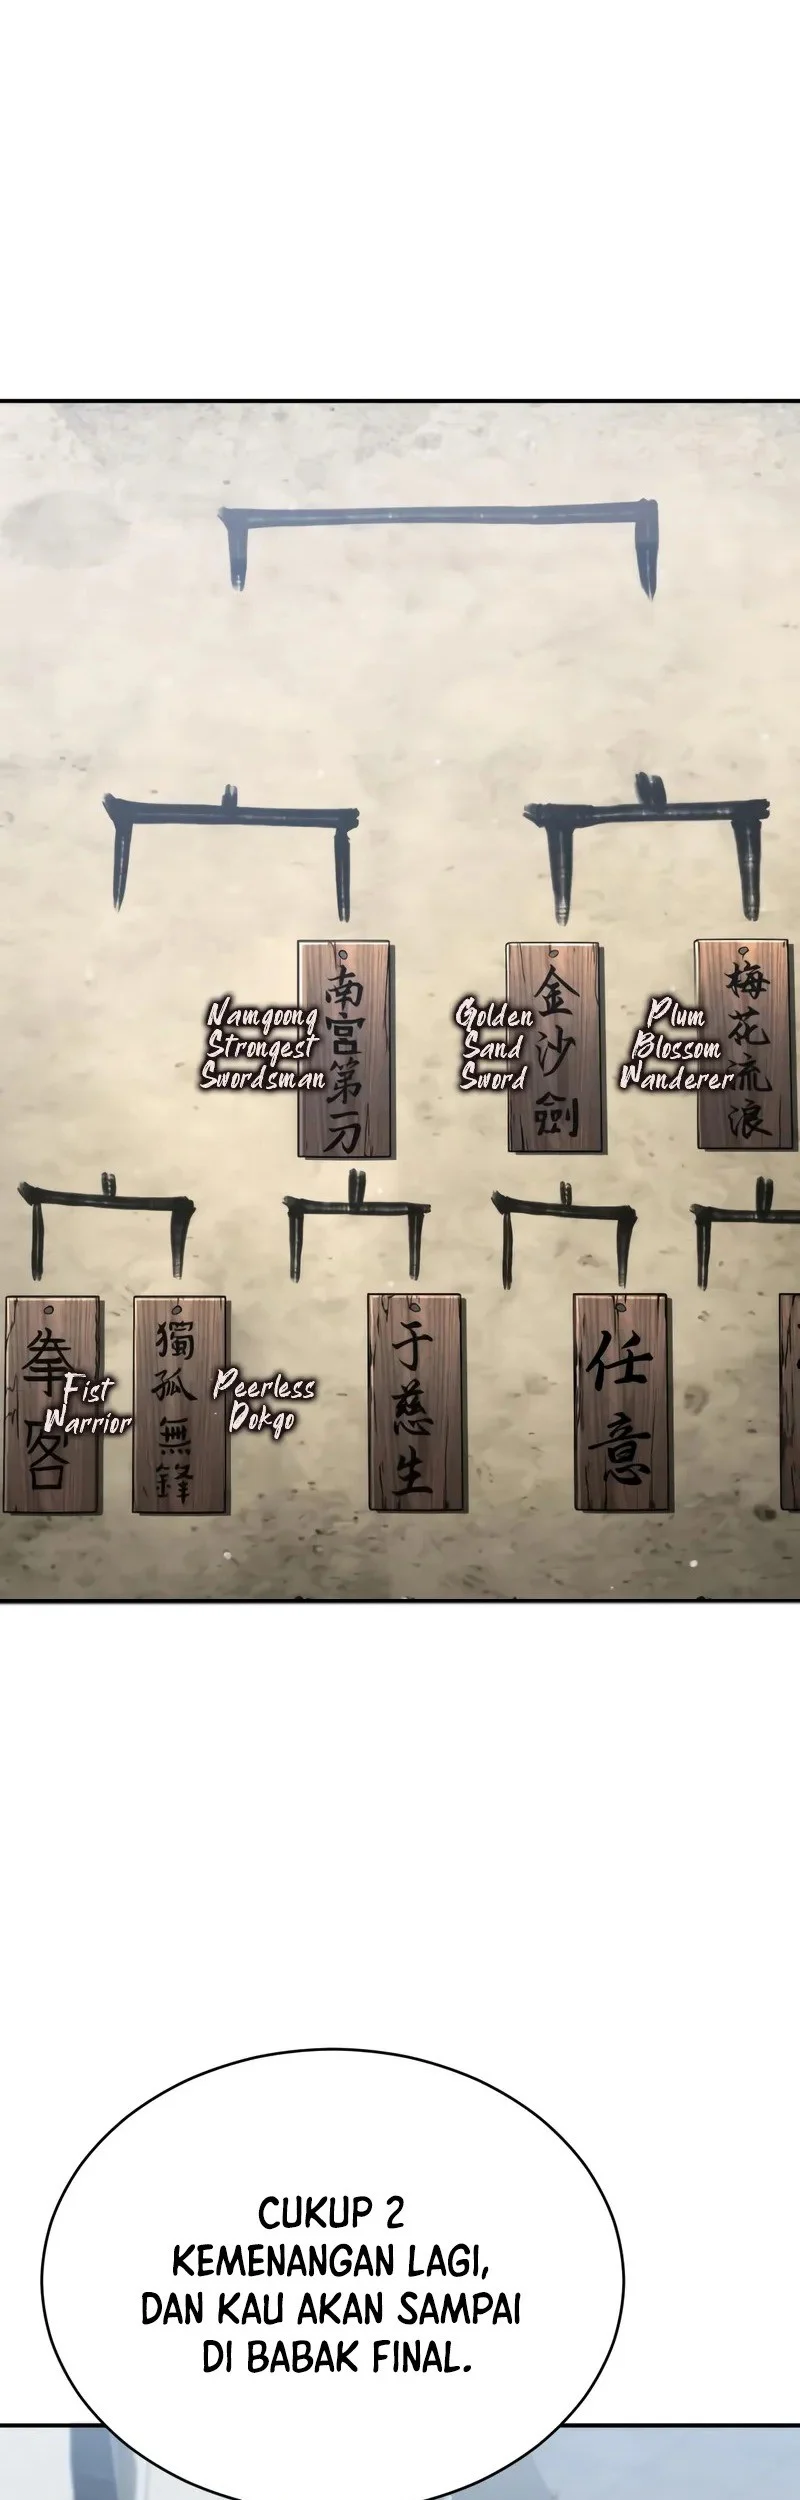 南宮第一刀
Namgoong
Strongest
Swordsman
金沙劍
Golden
Sand
Sword
梅花流浪
Plum
Blossom
Wanderer
拳客
Fist
Warrior
獨孤無鋒
Peerless
Dokgo
于慈生
任意
CUKUP 2
KEMENANGAN LAGI,
DAN KAU AKAN SAMPAI
DI BABAK FINAL.